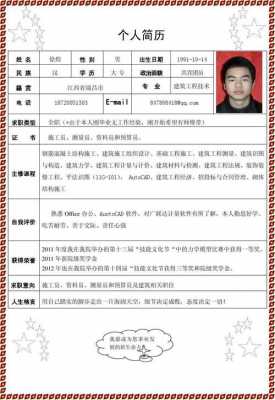 个人简历
姓 名 徐辉 性 别 男 出生日期 1991-10-14
民 族 汉 学 历 大 专 政治面貌 共青团员
籍 贯 江西省瑞昌市 专 业 建筑工程技术
电 话 E-mail @qq.com
求职类型 全职(*由于本人刚毕业无工作经验,刚开始希望有师傅带)
证 书 施工员、测量员、资料员和预算员。
主修课程
钢筋混凝土结构施工、建筑施工组织设计、基础工程施工、建筑工程测量、建筑识图
与构造、建筑力学、建筑工程计量与计价、建筑材料与检测、建筑工程法规、装饰装
修工程、平法识图(11G-101)、AutoCAD、建筑工程经济、招投标与合同管理、砌体
结构施工
自我评价
熟悉 Office 办公、AutoCAD 软件、对广联达计量软件有所了解。本人勤恳好学、
吃苦耐劳、善于交际、责任心强
获得荣誉
2011 年度我在我院举办的第十三届“技能文化节”中的力学模型比赛中获得一等奖。
2011 年获院级奖学金
2012 年也在我院举办的第十四届“技能文化节获得三等奖和院级奖学金。
求职意向 施工员、资料员、测量员和预算员及建筑相关职位
人生格言 用自己踏实的脚步走出一片海阔天空;细节决定成败,态度决定一切!
我愿成为您事业发
展的新生命力